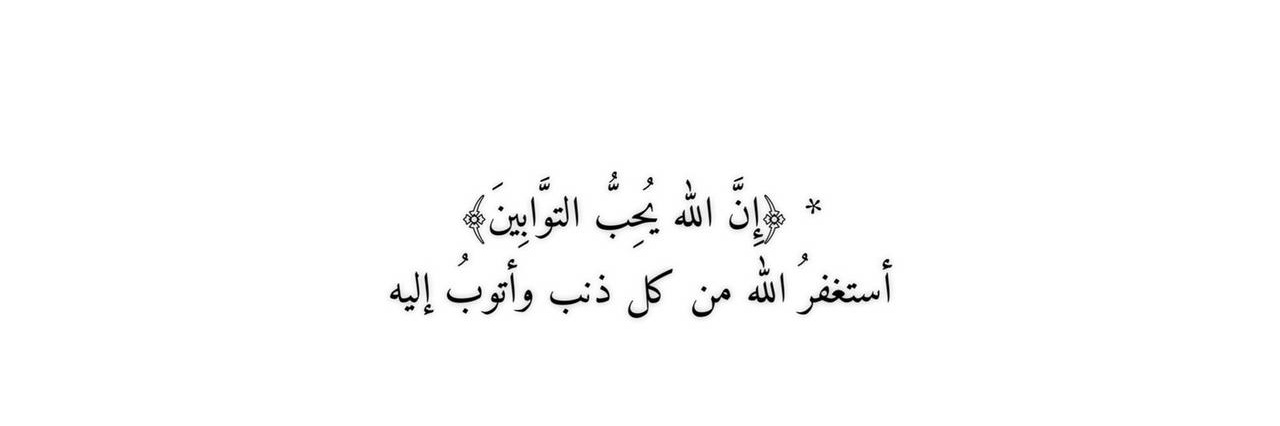 * ﴿إِنَّ الله يُحِبُّ التوَّابِينَ﴾
أستغفرُ الله من كل ذنب وأتوبُ إليه